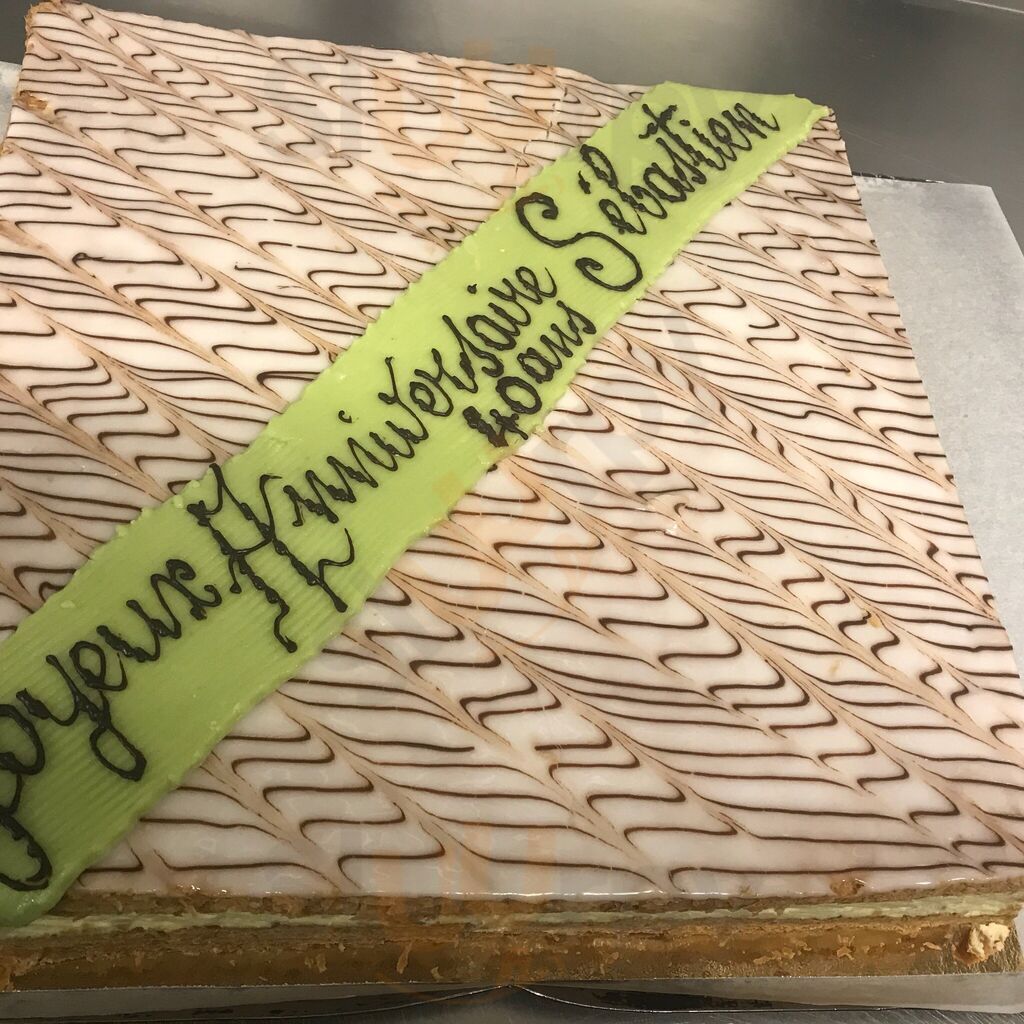 Joyeux Anniversaire Sébastien
40 ans